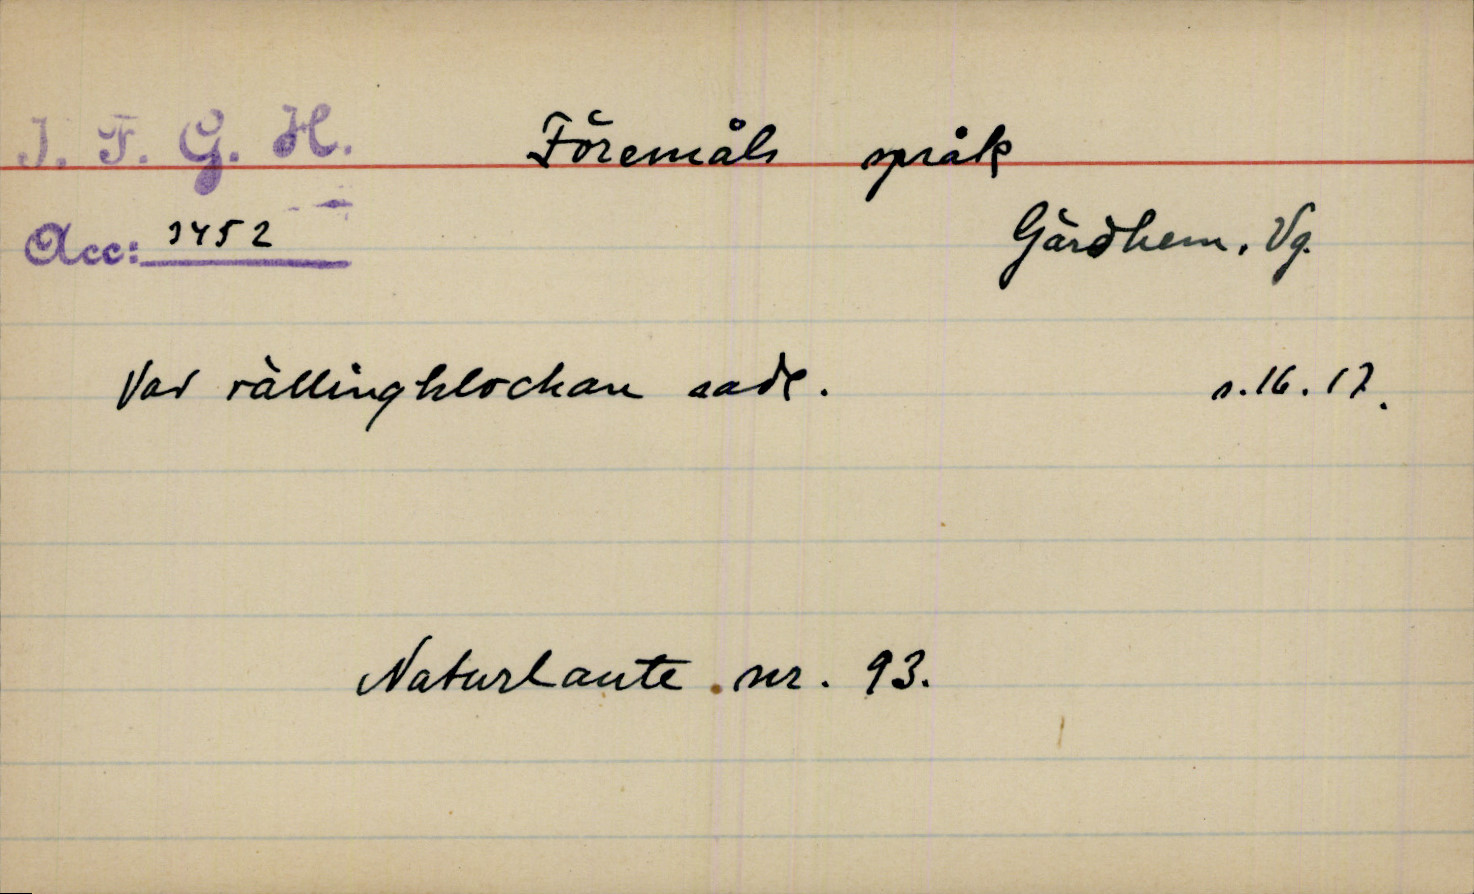 I. F. G. H.
Föremåls språk
Acc: 3452
Gärdhem, Vg.
Vad vällingklockan sade. s. 16. 17.
Naturlaute nr. 93.